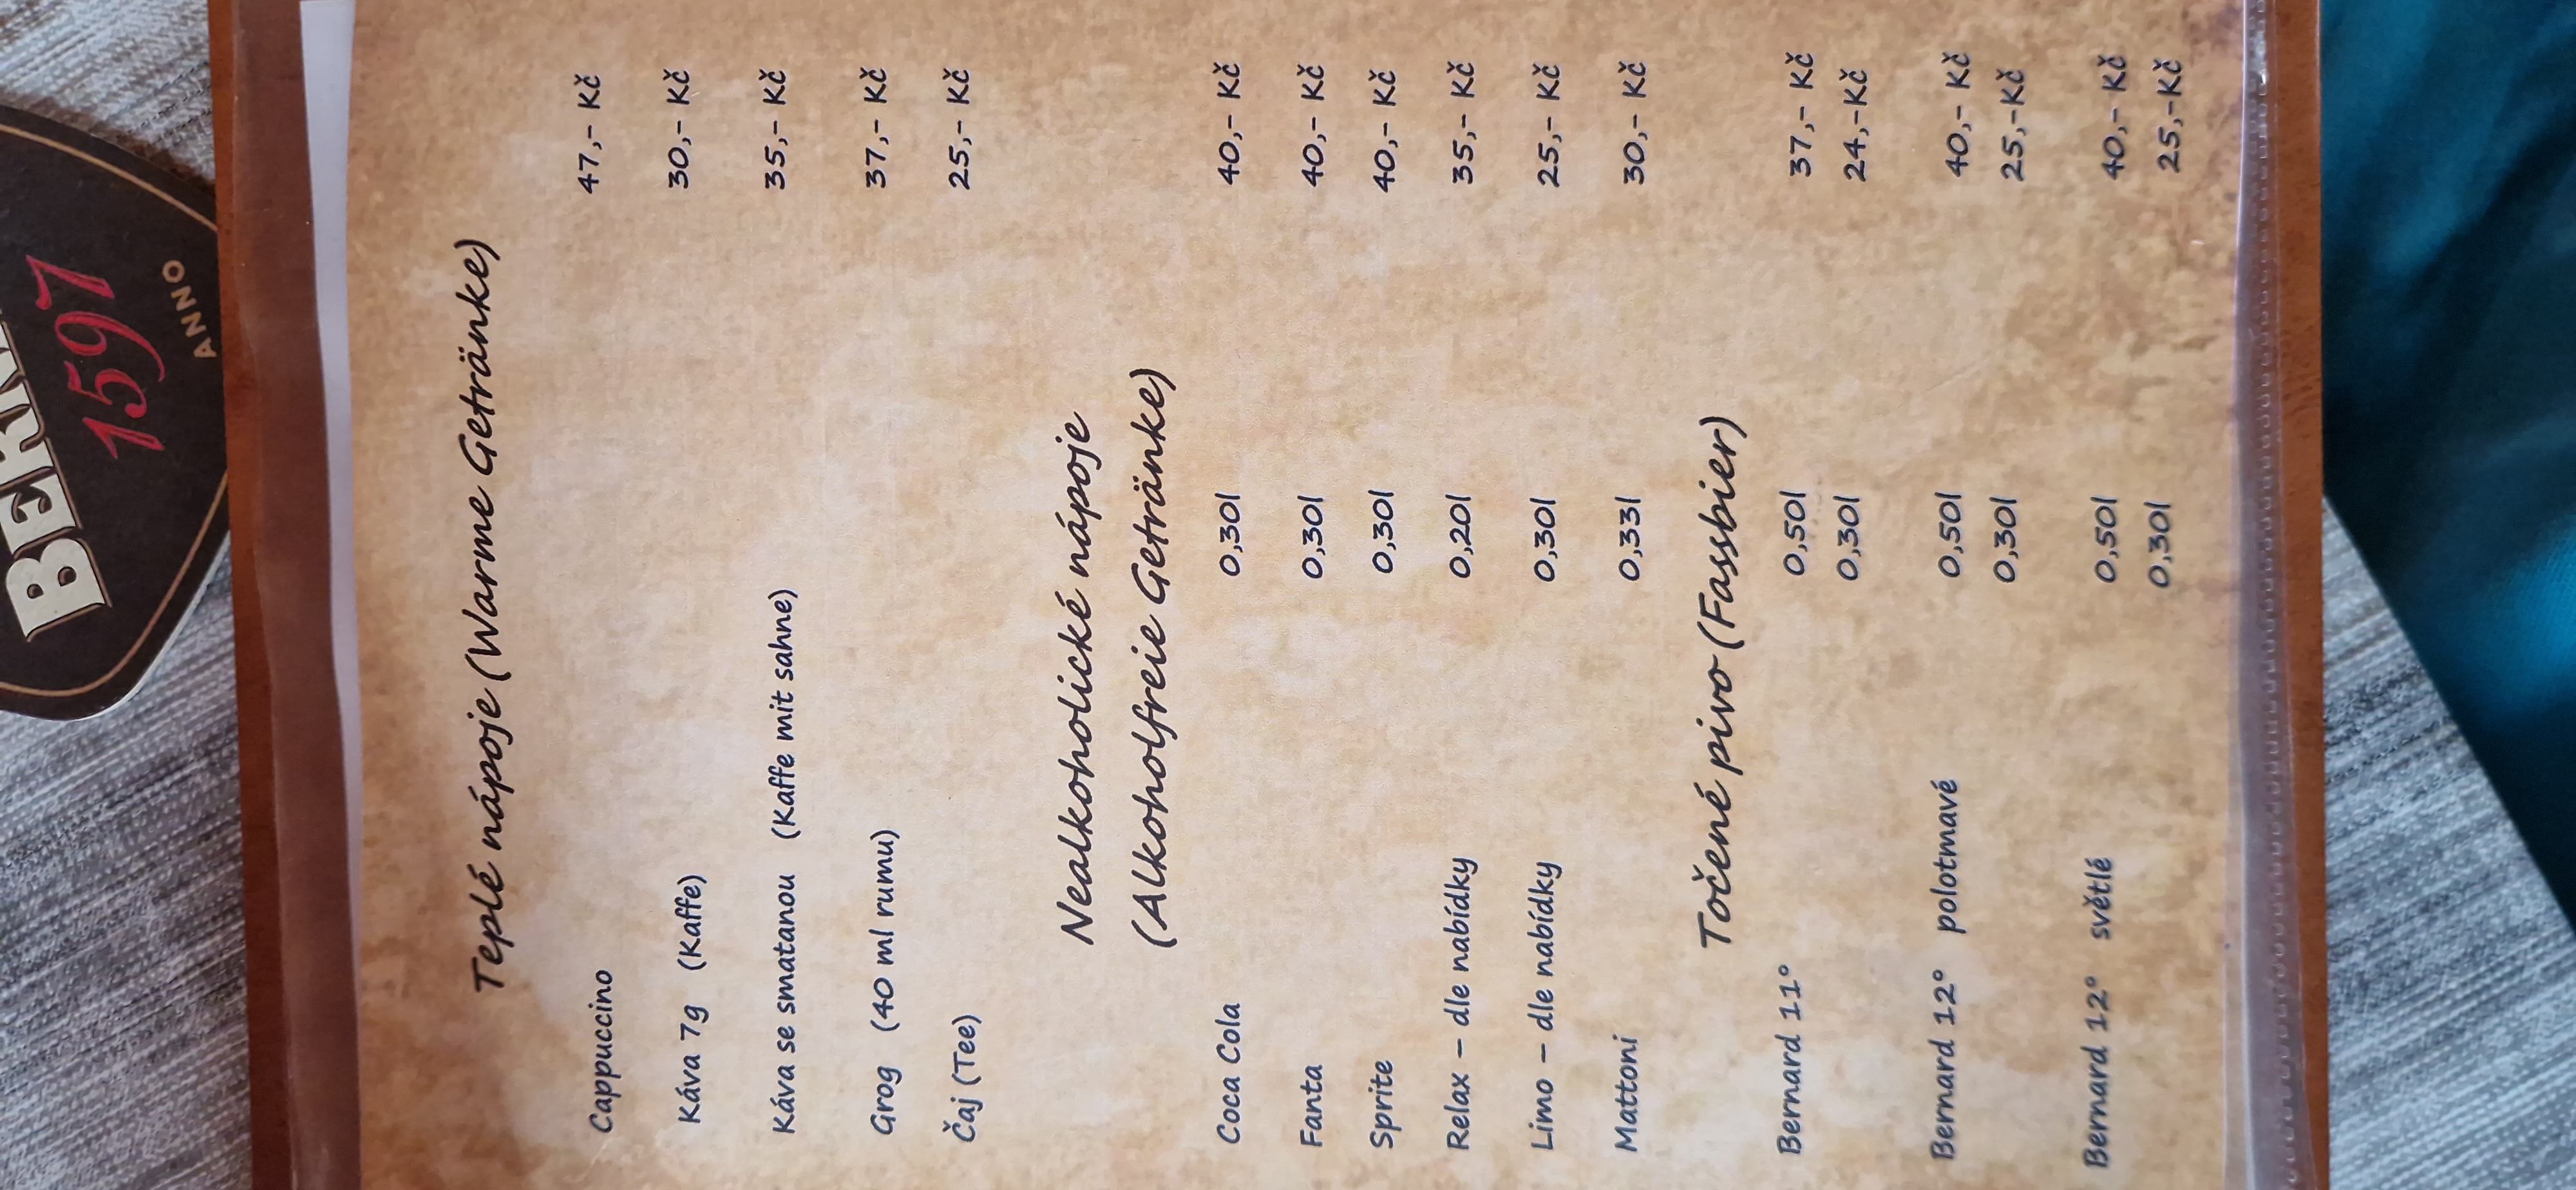 BER
1597
ANNO
Teplé nápoje (Warme Getränke)
Cappuccino 47,- Kč
Káva 7g (Kaffe) 30,- Kč
Káva se smatanou (Kaffe mit sahne) 35,- Kč
Grog (40 ml rumu) 37,- Kč
Čaj (Tee) 25,- Kč
Nealkoholické nápoje
(Alkoholfreie Getränke)
Coca Cola 0,30l 40,- Kč
Fanta 0,30l 40,- Kč
Sprite 0,30l 40,- Kč
Relax – dle nabídky 0,20l 35,- Kč
Limo – dle nabídky 0,30l 25,- Kč
Mattoni 0,33l 30,- Kč
Točené pivo (Fassbier)
Bernard 11° 0,50l 37,- Kč
0,30l 24,-Kč
Bernard 12° polotmavé 0,50l 40,- Kč
0,30l 25,-Kč
Bernard 12° světlé 0,50l 40,- Kč
0,30l 25,-Kč